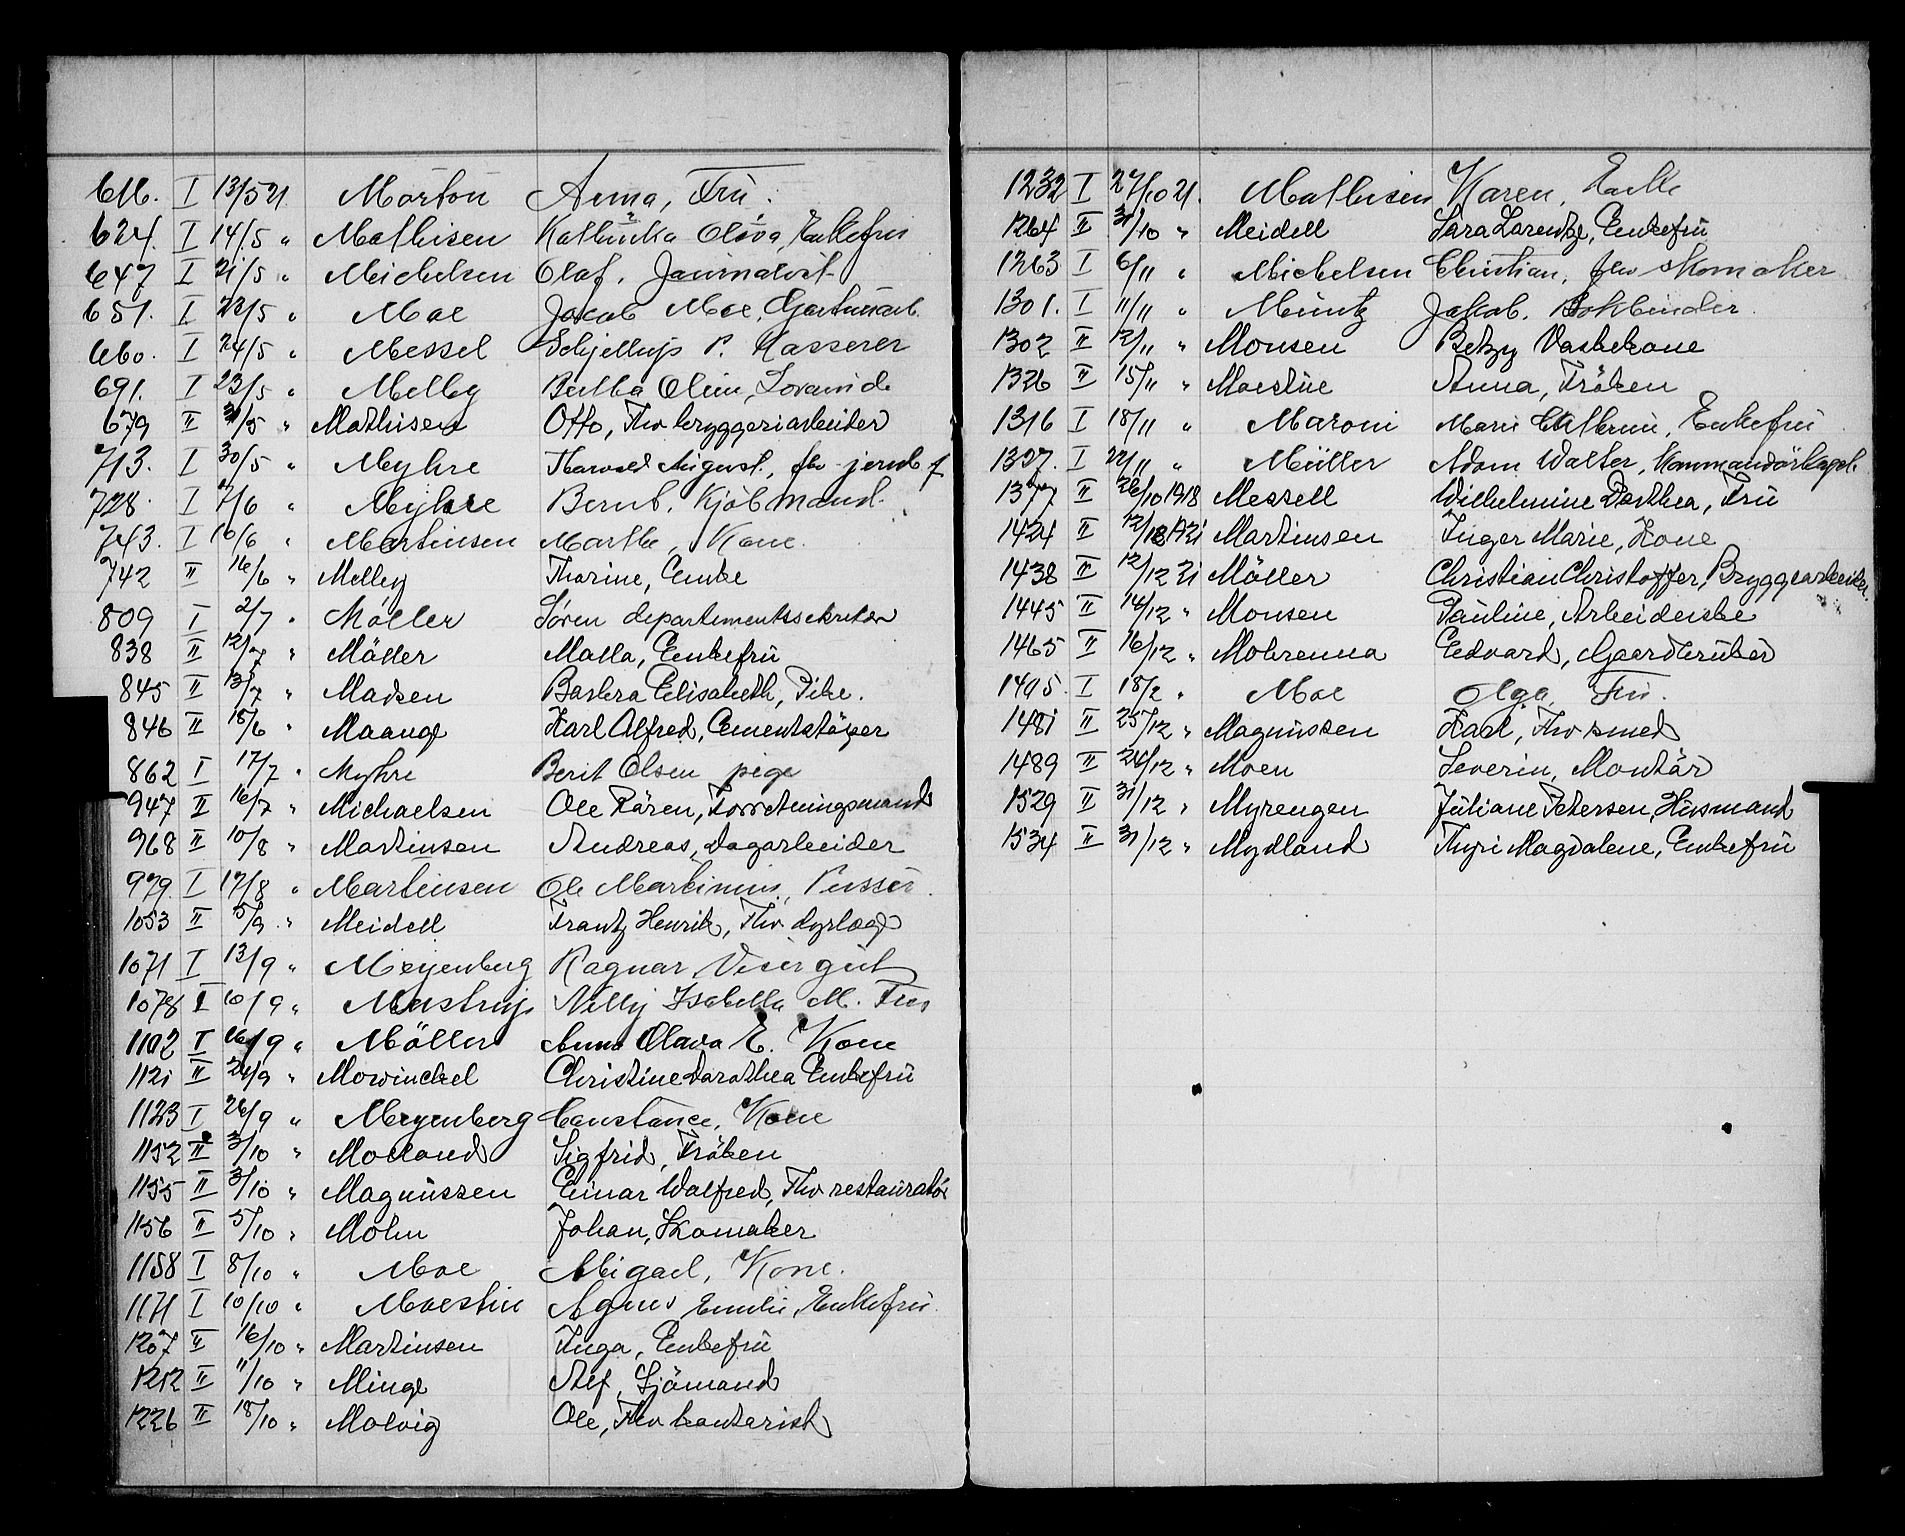 616. I 13/5 21 Morton Anna, Fru.
624. I 14/5 " Mathisen Kathinka Olava, Enkefru
647 I 21/5 " Michelsen Olaf, Journalist
651. I 23/5 " Moe Jakob Moe, Gartnerarb.
660. I 24/5 " Messel Schjellups P. Kasserer
691. I 23/5 " Melby Bertha Oline,
679 II 31/5 " Mathisen Otto, Fhv bryggeriarbeider
713. I 30/5 " Myhre Tharald August, fhv jernb. f
728. I 7/6 " Myhre Bernt, Kjöbmand.
743. I 10/6 " Martinsen Marthe, Kone.
742 II 16/6 " Melby Thorine, Enke
809 I 2/7 " Möller Sören departementssekretær
838 II 12/7 " Möller Malla, Enkefrü
845 II 13/7 " Madsen Barbra Elisabeth, Pike.
846 II 18/6 " Maange Karl Alfred, Cementstöper
862 I 17/7 " Myhre Berit Olsen pige
947 II 16/7 " Michaelsen Ole Kåren, Forretningsmand
968 II 10/8 " Martinsen Andreas, Dagarbeider
979. I 17/8 " Martinsen Ole Martinius, Pusser.
1053 II 5/9 " Meidell Frantz Henrik, Fhv dyrlæge
1071 I 13/9 " Meyenberg Ragnar, Visergut
1078 I 10/9 " Mustrup Nelly Isabella M. Fru
1102 I 16/9 " Möller Anna Olava E. Kone
1121 II 24/9 " Mowinckel Christine Darathea Enkefrü
1123 I 26/9 " Meyenberg Constance, Kone
1152 II 3/10 " Moland Sigfrid, Fröken
1155 II 3/10 " Magnüssen Einar Walfred, Fhv restauratör
1156 II 5/10 " Mohn Johan, Skomaker
1158 I 8/10 " Moe Abigael, Kone.
1171 I 10/10 " Moestue Agnes Emilie, Enkefru.
1207 II 16/10 " Martinsen Inga, Enkefrü
1212 II 11/10 " Minge Alf, Sjömand
1226 II 18/10 " Molvig Ole, Fhv kontorist
1232 I 27/10 21. Mathisen Karen, Enke
1264 II 31/10 " Meidell Sara Larentze, Enkefrü
1263 I 6/11 " Michelsen Christian, fhv skomaker
1301. I 11/11 " Müntz Jakob, Bokbinder.
1302 II 12/11 " Monsen Betzy Vaskekone
1326 II 15/11 " Moestue Anna, Fröken
1316 I 18/11 " Maroni Marie Cathrine, Enkefru
1327. I 22/11 " Müller Adam Walter, Kommandörkapt.
1377 II 26/10 1918 Messell Wilhelmine Dorthea, Frü
1424 II 12/12 1921 Martinsen Inger Marie, Kone
1438 II 12/12 21 Möller Christian Christoffer, Bryggearbeider.
1445 II 14/12 " Monsen Pauline, Arbeiderske
1465 II 16/12 " Mohrenna Edvard, Gaardbruker
1495. I 18/2 " Moe Olga, Fru.
1481 II 25/12 " Magnussen Karl, Fhv smed
1489 II 24/12 " Moen Severin, Montör
1529 II 31/12 " Myrengen Juliane Petersen, Husmand
1534 II 31/12 " Mydland Thyri Magdalene, Enkefrü